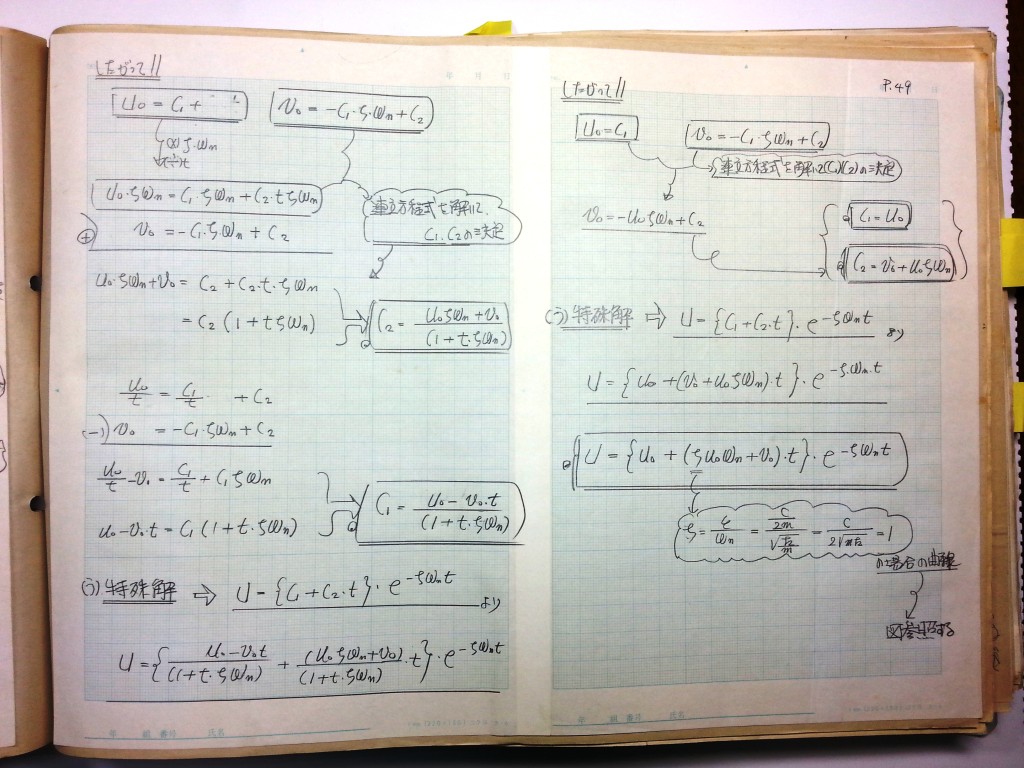 したがって//
U₀ = C₁ +
V₀ = -C₁·ζ·ωₙ + C₂
(×) ζ·ωₙ
U₀·ζωₙ = C₁·ζωₙ + C₂·t·ζωₙ
(+) V₀ = -C₁·ζωₙ + C₂
連立方程式を解いて、
C₁, C₂の決定
U₀·ζωₙ + V₀ = C₂ + C₂·t·ζωₙ
= C₂ (1 + tζωₙ)
C₂ = (U₀ζωₙ + V₀)/(1 + t·ζωₙ)
U₀/t = C₁/t · + C₂
(-) V₀ = -C₁·ζωₙ + C₂
U₀/t - V₀ = C₁/t + C₁ζωₙ
U₀ - V₀·t = C₁ (1 + t·ζωₙ)
C₁ = (U₀ - V₀·t)/(1 + t·ζωₙ)
(う) 特殊解 ⇒ U = {C₁ + C₂·t}·e^(-ζωₙt) より
U = {(U₀ - V₀t)/(1 + t·ζωₙ) + (U₀ζωₙ + V₀)/(1 + t·ζωₙ)·t}·e^(-ζωₙt)
年 組 番 氏名
P.49
したがって//
U₀ = C₁
V₀ = -C₁·ζωₙ + C₂
連立方程式を解いて(C₁)(C₂)の決定
V₀ = -U₀ζωₙ + C₂
C₁ = U₀
C₂ = V₀ + U₀ζωₙ
(う) 特殊解 ⇒ U = {C₁ + C₂·t}·e^(-ζωₙt) より
U = {U₀ + (V₀ + U₀ζωₙ)·t}·e^(-ζωₙ·t)
U = {U₀ + (ζU₀ωₙ + V₀)·t}·e^(-ζωₙt)
ζ = ε/ωₙ = (C/2m)/√(k/m) = C/(2√mk) = 1
の場合の曲線
図参照する
年 組 番 氏名